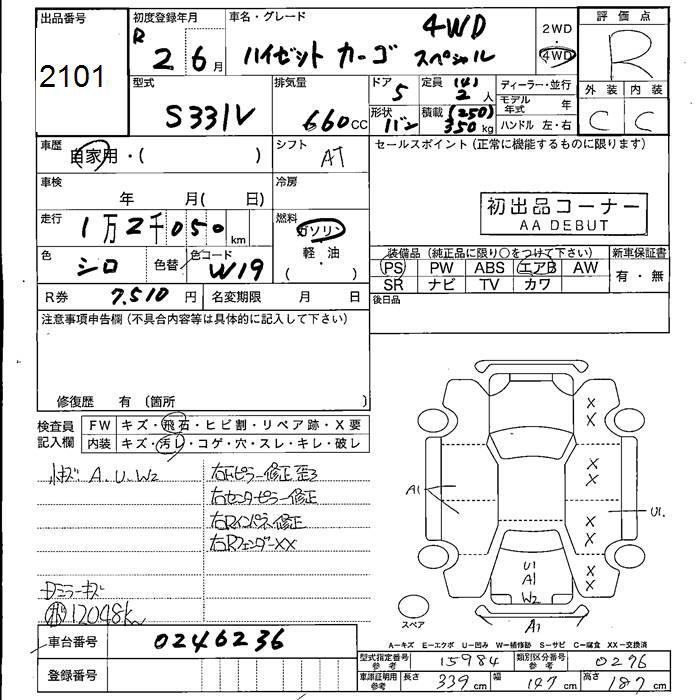 出品番号
2101
初度登録年月
R 2 6月
車名・グレード
4WD
ハイゼット カーゴ スペシャル
2WD
・
4WD
評価点
R
外装 内装
C C
型式
S331V
排気量
660cc
ドア
5
形状
バン
定員 (4)
2人
積載 (250)
350kg
ディーラー・並行
モデル年式 年
ハンドル 左・右
車歴
自家用・( )
シフト
AT
セールスポイント(正常に機能するものに限ります)
車検
年 月( 日)
冷房
初出品コーナー
AA DEBUT
走行
1万2千050km
燃料
ガソリン
軽・油
( ・ )
色
シロ
色替
色コード
W19
装備品(純正品に限り○をつけて下さい)
PS PW ABS エアB AW
SR ナビ TV カワ
新車保証書
有・無
R券 7,510円
名変期限 月 日
後日品
注意事項申告欄(不具合内容等は具体的に記入して下さい)
修復歴 有 〔箇所 〕
検査員
記入欄
FW キズ・飛石・ヒビ割・リペア跡・X要
内装 キズ・汚レ・コゲ・穴・スレ・キレ・破レ
小キズ A.U.W2
右Fピラー修正歪3
右センタピラー修正
右Rインパネ修正
右RフェンダーXX
ドアミラーキズ
12048km
A1
X
X
X
X
X
X
X
X
U1.
U1
A1
W2
A1
スペア
A―キズ E―エクボ U―凹み W―補修跡 S―サビ C―腐食 XX―交換済
車台番号
0246236
登録番号
型式指定番号
参考
15984
類別区分番号
参考
0276
車庫証明用
参考
長さ 339cm 幅 147cm 高さ 187cm